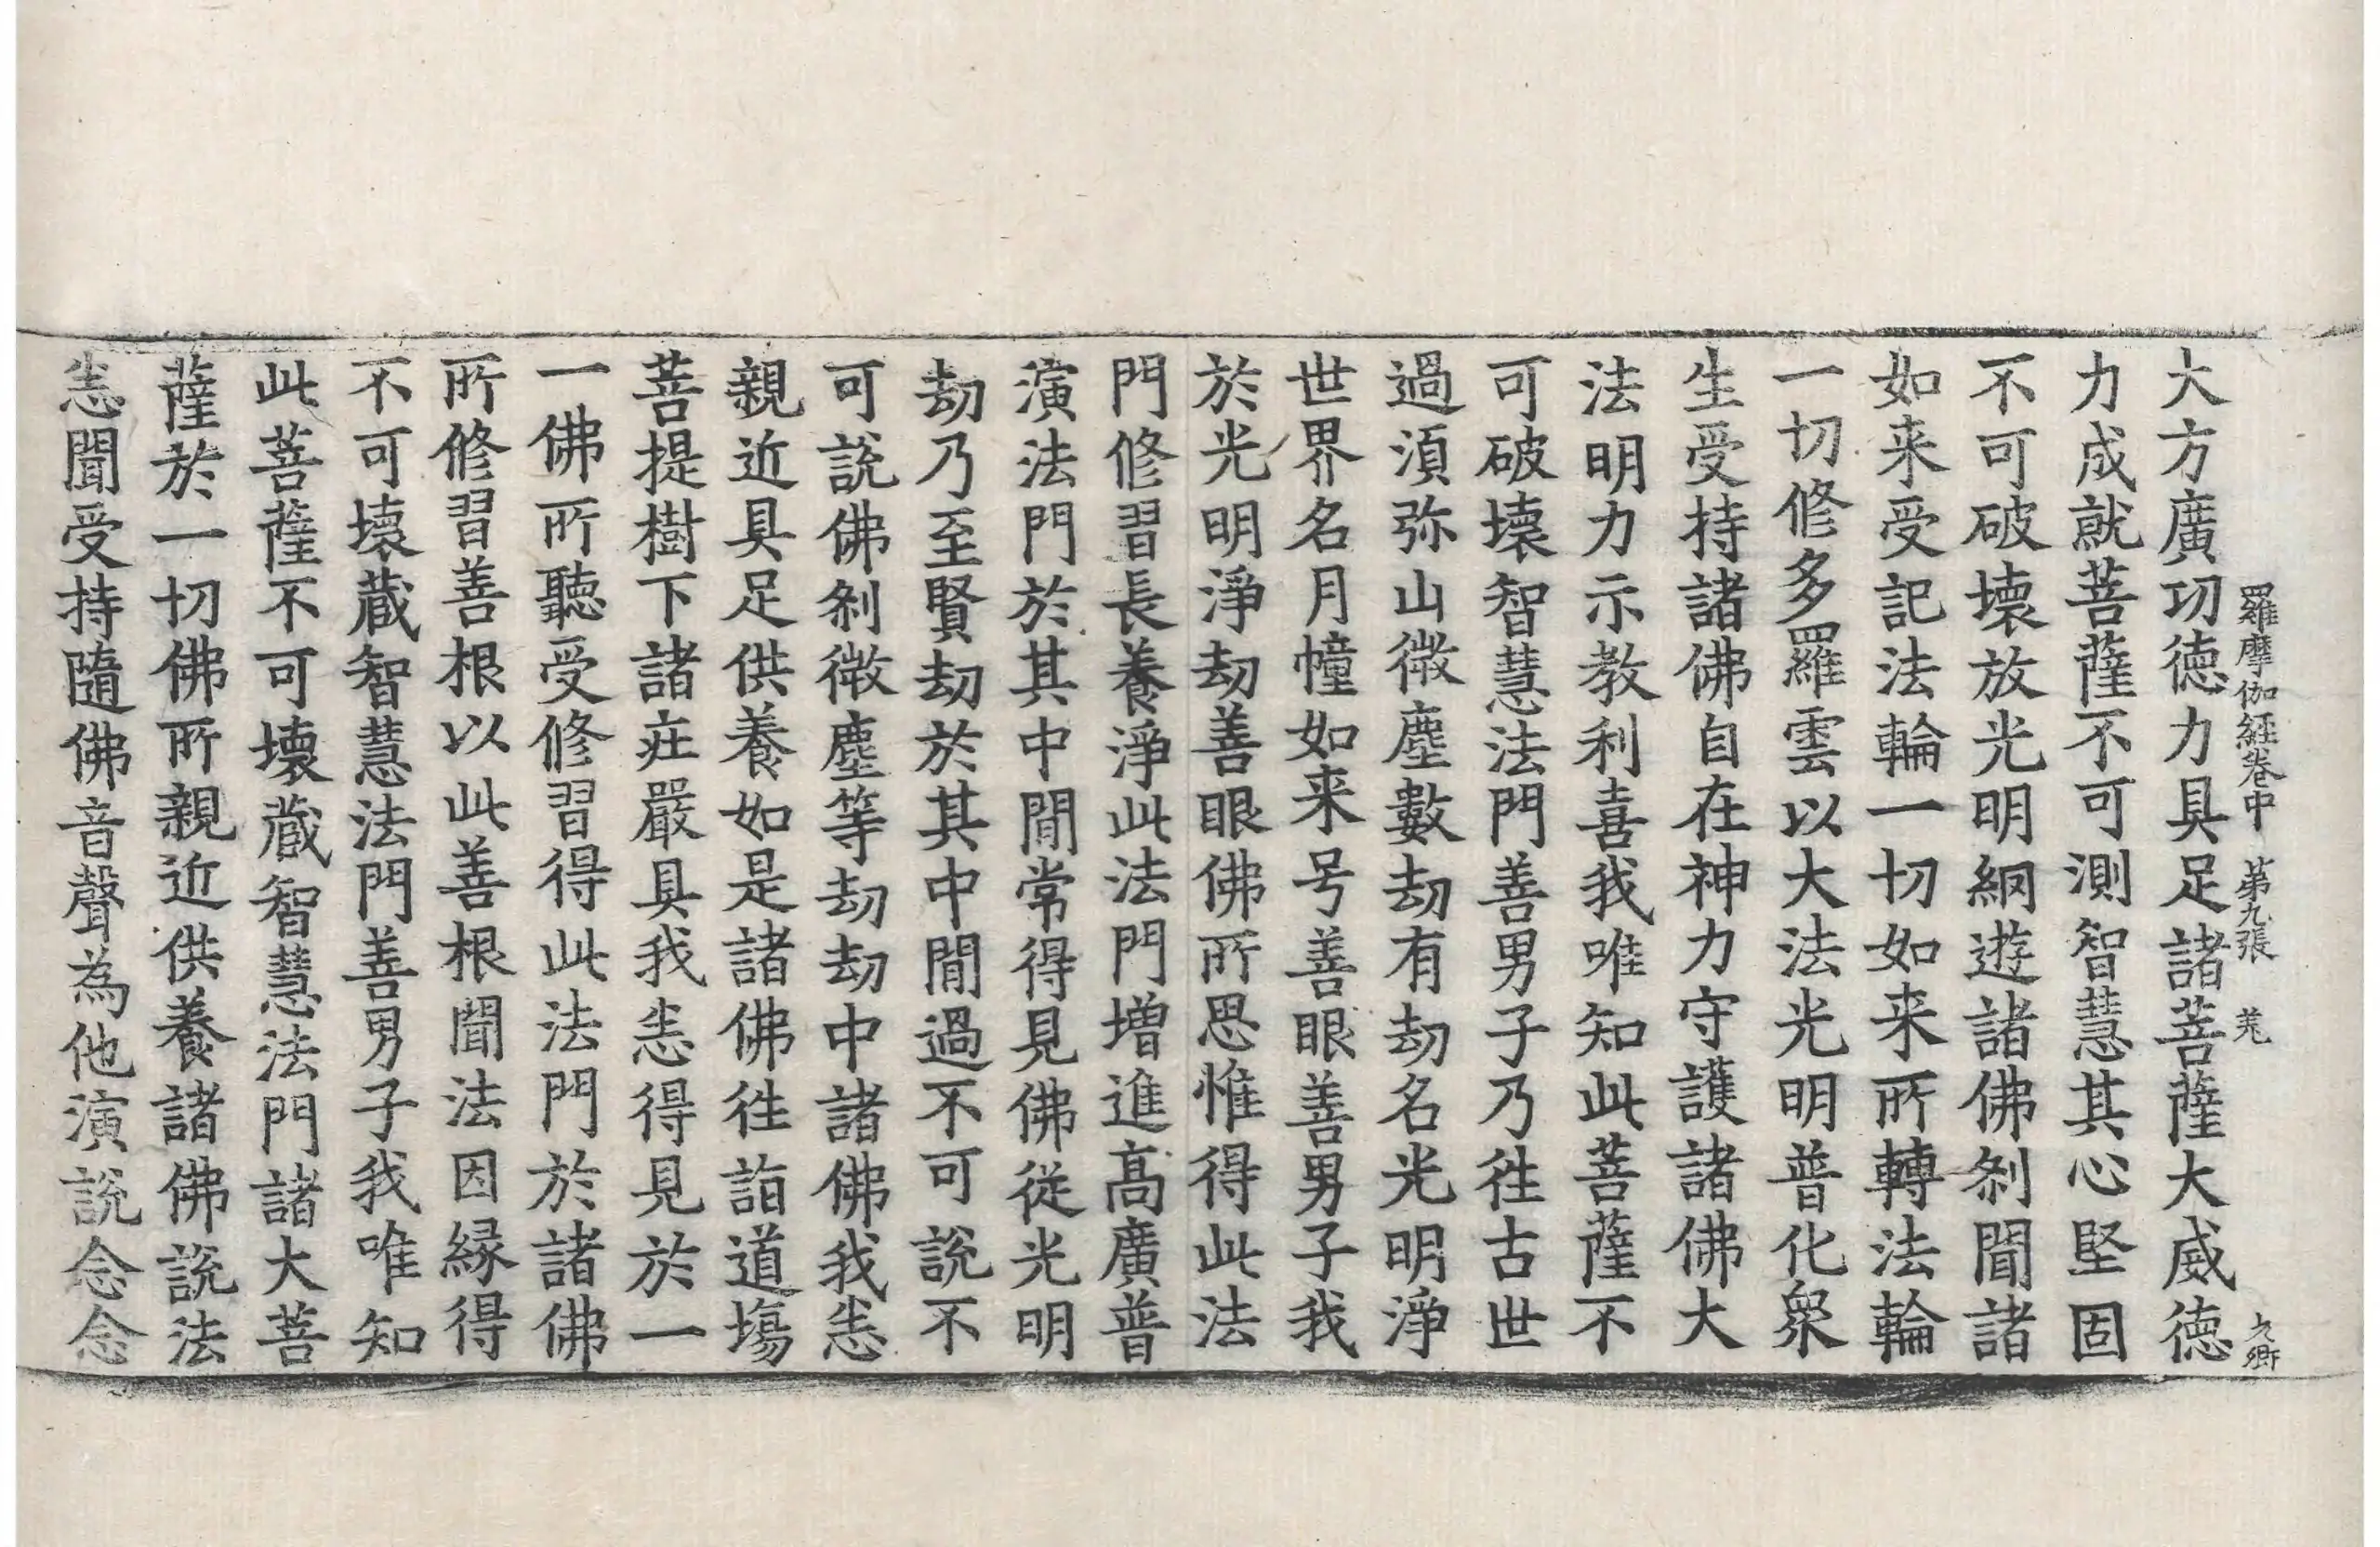 羅摩伽経卷中 第九張 羗
大方廣功徳力具足諸菩薩大威徳
力成就菩薩不可測智慧其心堅固
不可破壞放光明網遊諸佛刹聞諸
如来受記法輪一切如来所轉法輪
一切修多羅雲以大法光明普化衆
生受持諸佛自在神力守護諸佛大
法明力示教利喜我唯知此菩薩不
可破壞智慧法門善男子乃徃古世
過湏弥山微塵數劫有劫名光明淨
世界名月幢如来号善眼善男子我
於光明淨劫善眼佛所思惟得此法
門修習長養淨此法門増進髙廣普
演法門於其中間常得見佛從光明
劫乃至賢劫於其中間過不可說不
可說佛刹微塵等劫劫中諸佛我悉
親近具足供養如是諸佛徃詣道塲
菩提樹下諸庄嚴具我悉得見於一
一佛所聽受修習得此法門於諸佛
所修習善根以此善根聞法因縁得
不可壞蔵智慧法門善男子我唯知
此菩薩不可壞蔵智慧法門諸大菩
薩於一切佛所親近供養諸佛說法
悉聞受持隨佛音聲為他演說念念